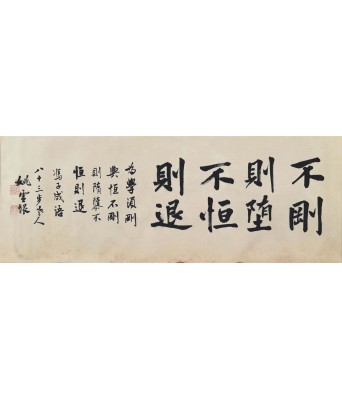 不剛
則堕
不恒
則退
為學須剛
與恒不剛
則隋隳不
恒則退
馮子咸語
八十三岁老人
姚雪垠